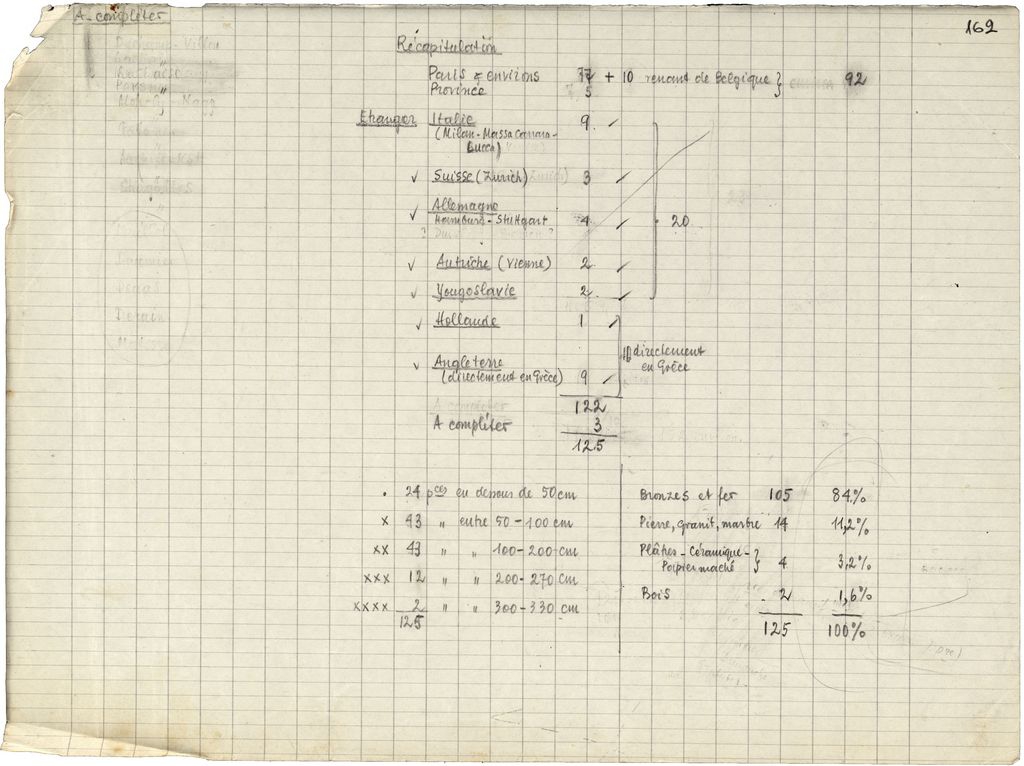 A compléter
162
Duchamp-Villon
Récapitulation
Paris & environs 77 + 10 venant de Belgique } 92
Province 5
Etranger Italie 9 ✓
(Milan-Massa Carrara-
Lucca)
✓ Suisse (Zurich) 3 ✓
Allemagne
✓ Hambourg-Stuttgart 4 ✓ 20
✓ Autriche (Vienne) 2 ✓
✓ Yougoslavie 2 ✓
✓ Hollande 1 ✓
10 directement
en Grèce
✓ Angleterre
(directement en Grèce) 9 ✓
122
A compléter 3
125
. 24 pces en dessous de 50 cm
x 43 " entre 50-100 cm
xx 43 " " 100-200 cm
xxx 12 " " 200-270 cm
xxxx 2 " " 300-330 cm
125
Bronzes et fer 105 84%
Pierre, granit, marbre 14 11,2%
Plâtres-Céramique- }
Papier maché } 4 3,2%
Bois 2 1,6%
125 100%
Degas
Derain